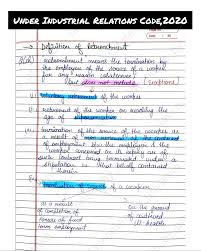 UNDER INDUSTRIAL RELATIONS CODE,2020
Definition of Retrenchment
Retrenchment means the termination by
the employer of the service of a worker
for any reason whatsoever
But does not include
(i) Voluntary retirement of the worker
(ii) retirement of the worker on reaching the
age of superannuation
(iii) termination of the service of the worker as
a result of non-renewal of the contract
of employment b/w the employer & the
worker concerned on its expiry or of
such contract being terminated under a
stipulation in that behalf contained
therein
termination of service of a worker
as a result
of completion of
tenure of fixed
term employment
on the ground
of continued
ill health